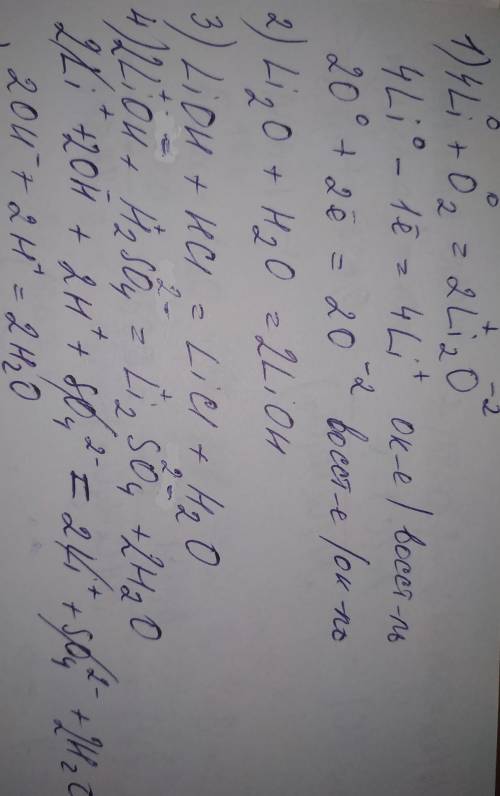 1) 4Li⁰ + O₂⁰ = 2Li₂⁺O⁻²
4Li⁰ − 1ē = 4Li⁺ ок-е / восст-ль
2O⁰ + 2ē = 2O⁻² восст-е / ок-ль
2) Li₂O + H₂O = 2LiOH
3) LiOH + HCl = LiCl + H₂O
4) 2Li⁺OH⁻ + H₂⁺SO₄²⁻ = Li₂⁺SO₄²⁻ + 2H₂O
2Li⁺ + 2OH⁻ + 2H⁺ + SO₄²⁻ = 2Li⁺ + SO₄²⁻ + 2H₂O
2OH⁻ + 2H⁺ = 2H₂O